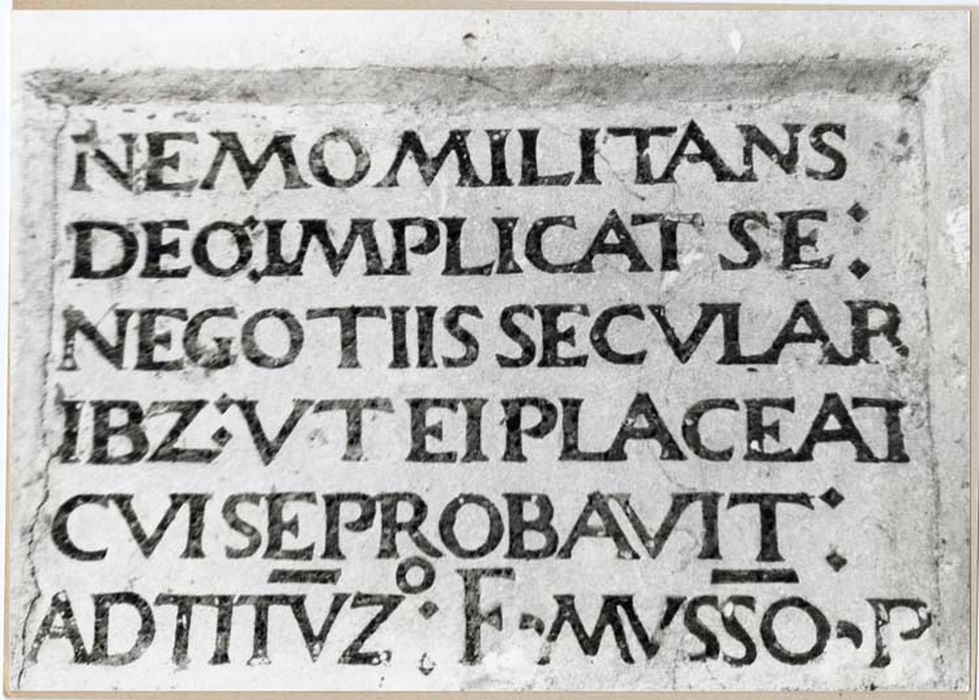 NEMO MILITANS
DEO: IMPLICAT SE:
NEGOTIIS SECVLAR
IBZ: VT EI PLACEAT
CVI SE PROBAVIT:
AD TITVZ° : F · MVSSO · P